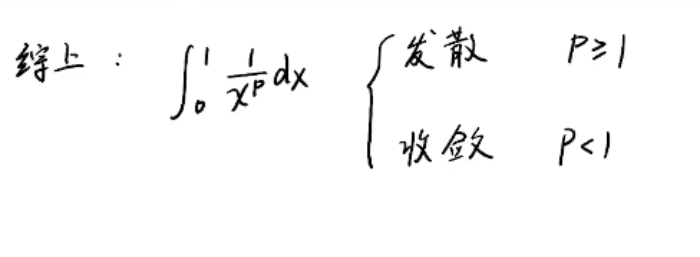 综上: ∫₀¹ 1/xᵖ dx { 发散 P≥1
收敛 P<1